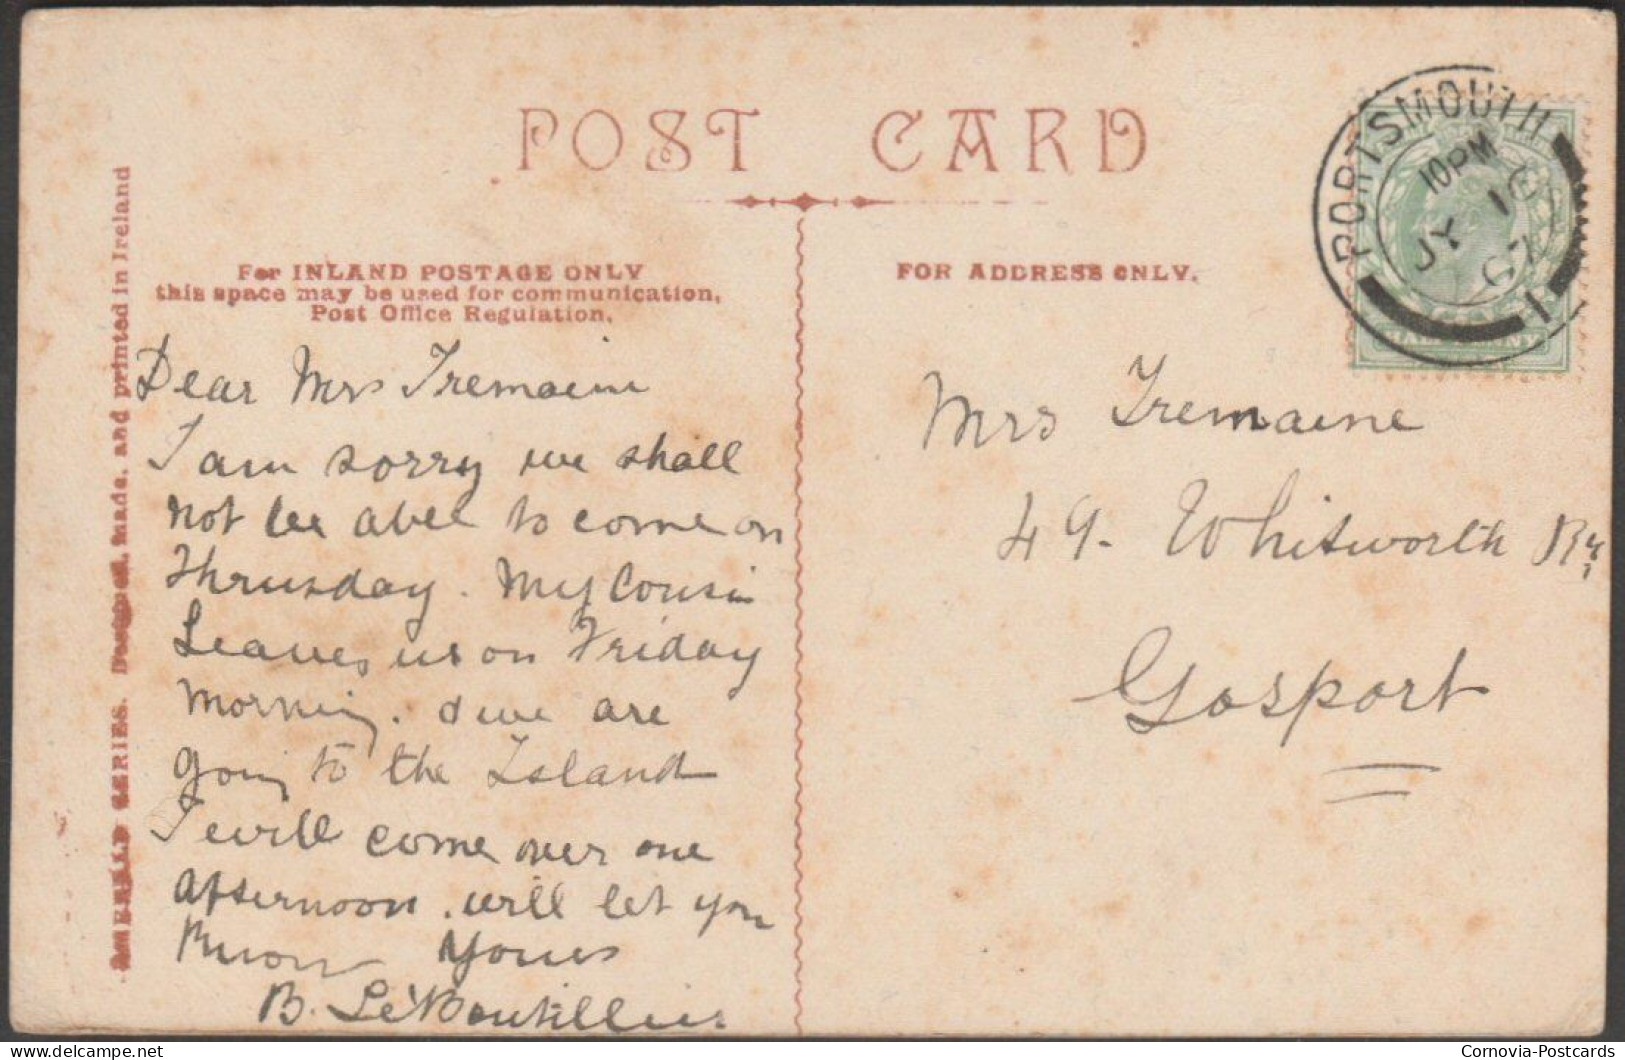 POST CARD
For INLAND POSTAGE ONLY
this space may be used for communication,
Post Office Regulation.
FOR ADDRESS ONLY.
EMERALD SERIES. Designed, made, and printed in Ireland
PORTSMOUTH
10PM
JY 16
07
1
HALFPENNY
Dear Mrs Tremaine
I am sorry we shall
not be abel to come on
Thrusday. My Cousin
Leaves us on Friday
morning. & we are
going to the Island
I will come over one
afternoon. will let you
know Yours
B. Le Boutillier
Mrs Tremaine
49. Whitworth Rd
Gosport
delcampe.net
Cornovia-Postcards